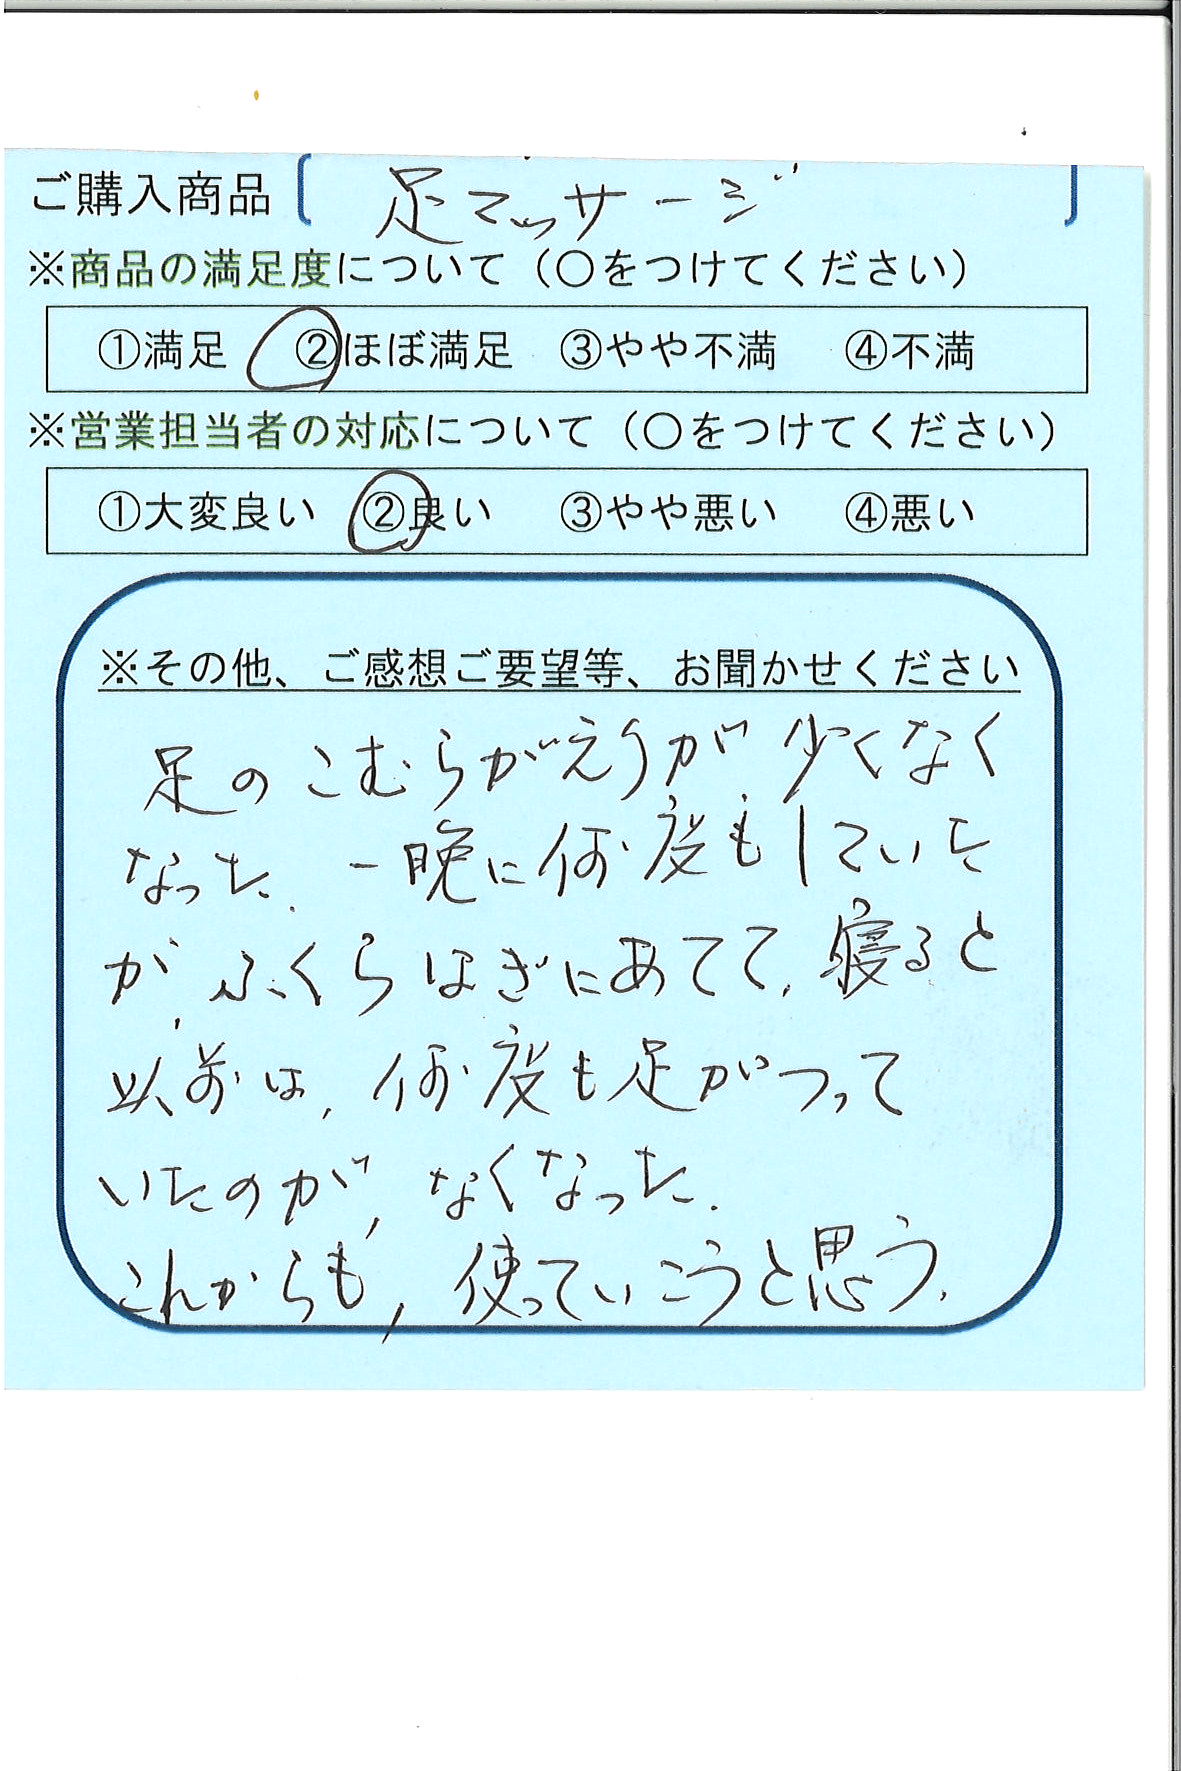 ご購入商品 [ 足マッサージ ]
※商品の満足度について(○をつけてください)
①満足 ②ほぼ満足 ③やや不満 ④不満
※営業担当者の対応について(○をつけてください)
①大変良い ②良い ③やや悪い ④悪い
※その他、ご感想ご要望等、お聞かせください
足のこむらがえりが少くなく
なった.一晩に何度もしていた
が,ふくらはぎにあてて,寝ると
以前は,何度も足がつって
いたのが,なくなった.
これからも,使っていこうと思う.